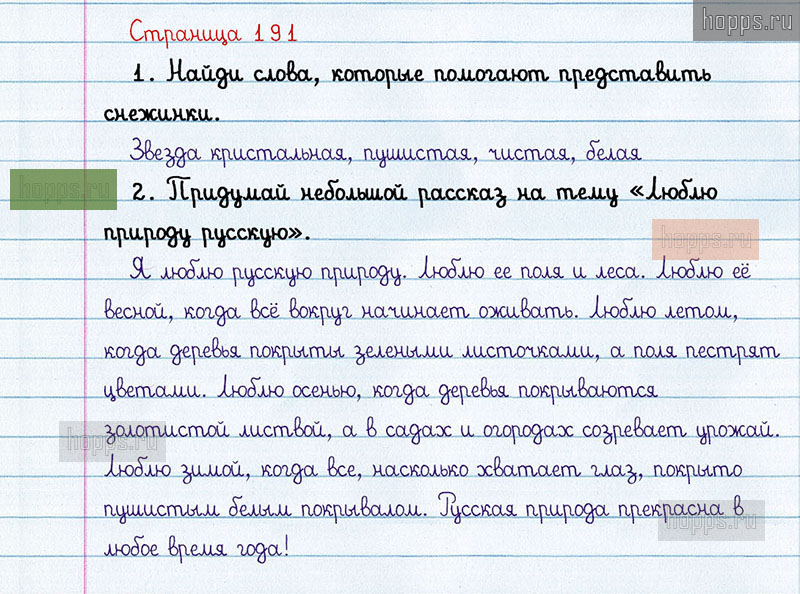 hopps.ru
Страница 191
1. Найди слова, которые помогают представить
снежинки.
Звезда кристальная, пушистая, чистая, белая
hopps.ru
2. Придумай небольшой рассказ на тему «Люблю
природу русскую».
hopps.ru
Я люблю русскую природу. Люблю ее поля и леса. Люблю её
весной, когда всё вокруг начинает оживать. Люблю летом,
когда деревья покрыты зелеными листочками, а поля пестрят
цветами. Люблю осенью, когда деревья покрываются
золотистой листвой, а в садах и огородах созревает урожай.
hopps.ru
Люблю зимой, когда все, насколько хватает глаз, покрыто
пушистым белым покрывалом. Русская природа прекрасна в
hopps.ru
любое время года!